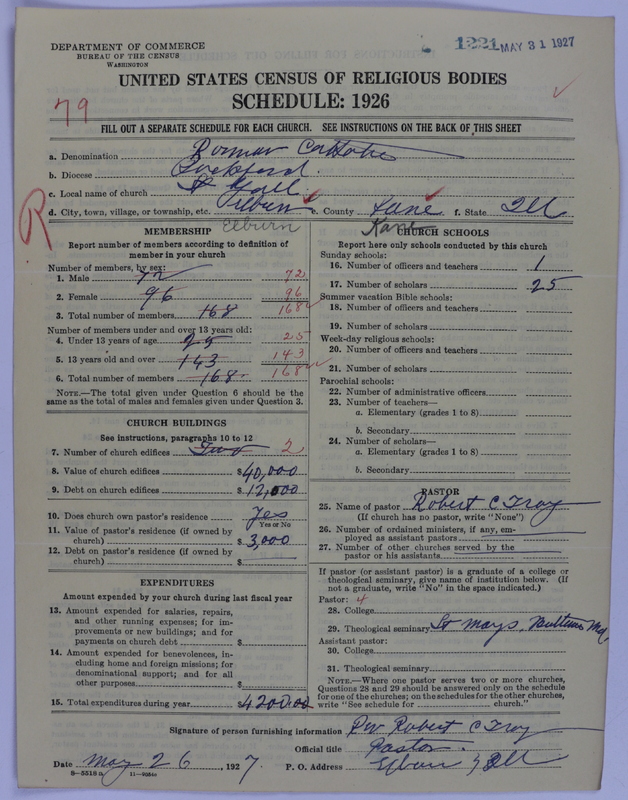 1221 MAY 31 1927
DEPARTMENT OF COMMERCE
BUREAU OF THE CENSUS
WASHINGTON
UNITED STATES CENSUS OF RELIGIOUS BODIES
SCHEDULE: 1926
79
FILL OUT A SEPARATE SCHEDULE FOR EACH CHURCH. SEE INSTRUCTIONS ON THE BACK OF THIS SHEET
a. Denomination Roman Catholic
b. Diocese Rockford.
c. Local name of church St Gall
d. City, town, village, or township, etc. Elburn e. County Kane f. State Ill
R
Elburn Kane
MEMBERSHIP
Report number of members according to definition of
member in your church
Number of members, by sex:
1. Male 72 72
2. Female 96 96
3. Total number of members 168 168
Number of members under and over 13 years old:
4. Under 13 years of age 25 25
5. 13 years old and over 143 143
6. Total number of members 168 168
NOTE.—The total given under Question 6 should be
same as the total of males and females given under Question 3.
CHURCH BUILDINGS
See instructions, paragraphs 10 to 12
7. Number of church edifices Two 2
8. Value of church edifices $40,000
9. Debt on church edifices $12,000
10. Does church own pastor's residence Yes
Yes or No
11. Value of pastor's residence (if owned by
church) $3,000
12. Debt on pastor's residence (if owned by
church) $
EXPENDITURES
Amount expended by your church during last fiscal year
13. Amount expended for salaries, repairs,
and other running expenses; for im-
provements or new buildings; and for
payments on church debt $
14. Amount expended for benevolences, in-
cluding home and foreign missions; for
denominational support; and for all
other purposes $
15. Total expenditures during year $4200.00
CHURCH SCHOOLS
Report here only schools conducted by this church
Sunday schools:
16. Number of officers and teachers 1
17. Number of scholars 25
Summer vacation Bible schools:
18. Number of officers and teachers
19. Number of scholars
Week-day religious schools:
20. Number of officers and teachers
21. Number of scholars
Parochial schools:
22. Number of administrative officers
23. Number of teachers—
a. Elementary (grades 1 to 8)
b. Secondary
24. Number of scholars—
a. Elementary (grades 1 to 8)
b. Secondary
PASTOR
25. Name of pastor Robert C Troy
(If church has no pastor, write "None")
26. Number of ordained ministers, if any, em-
ployed as assistant pastors
27. Number of other churches served by the
pastor or his assistants
If pastor (or assistant pastor) is a graduate of a college or
theological seminary, give name of institution below. (If
not a graduate, write "No" in the space indicated.)
Pastor: 4
28. College
29. Theological seminary St Marys, Baltimore Md
Assistant pastor:
30. College
31. Theological seminary
NOTE.—Where one pastor serves two or more churches,
Questions 28 and 29 should be answered only on the schedule
for one of the churches; on the schedules for the other churches,
write "See schedule for church."
Signature of person furnishing information Rev Robert C Troy
Official title Pastor.
Date May 26, 1927. P. O. Address Elburn Ill
8—5518a 11—9054